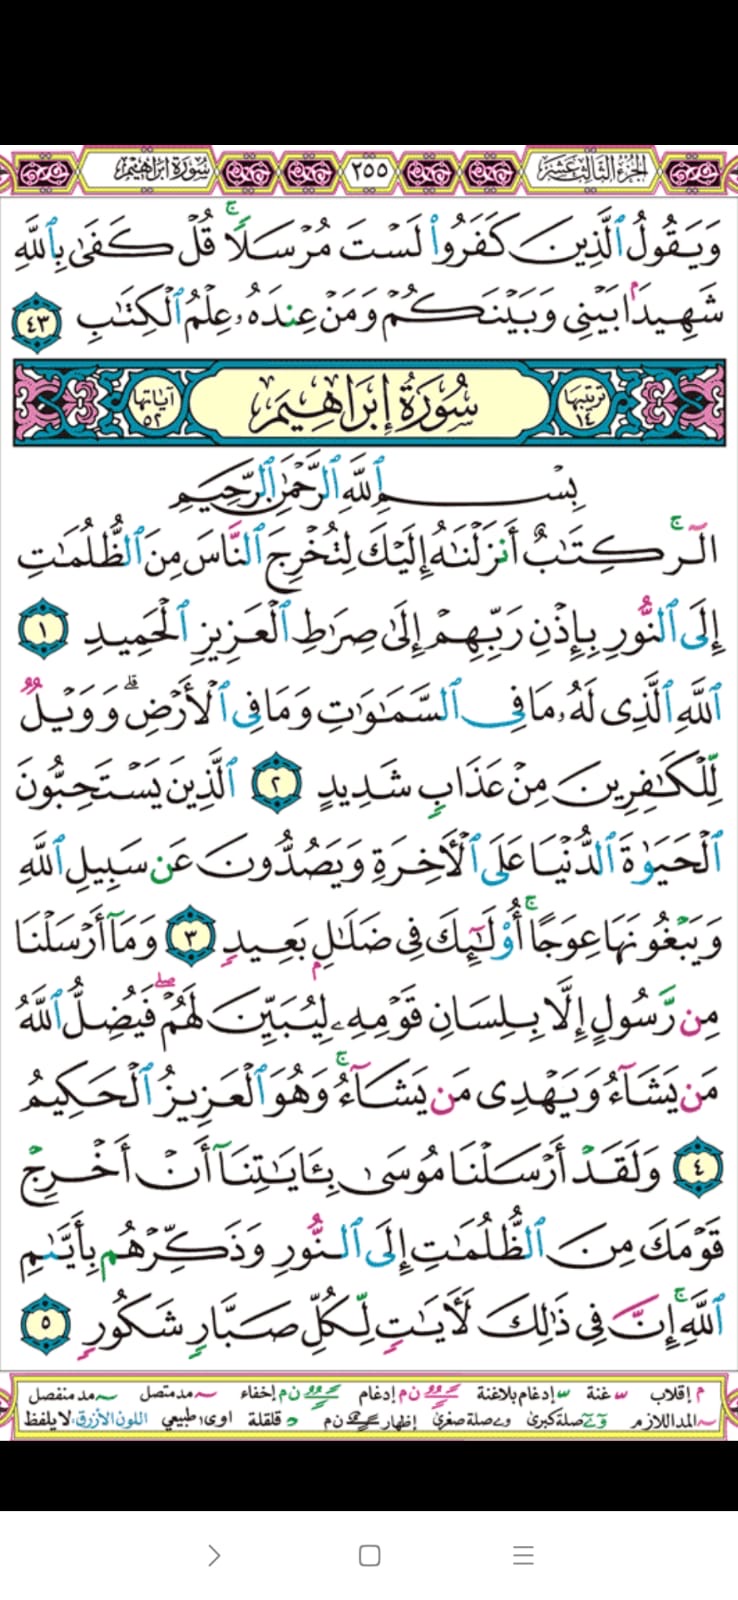 الجزء الثالث عشر ٢٥٥ سورة ابراهيم
وَيَقُولُ ٱلَّذِينَ كَفَرُوا۟ لَسْتَ مُرْسَلًا ۚ قُلْ كَفَىٰ بِٱللَّهِ
شَهِيدًۢا بَيْنِى وَبَيْنَكُمْ وَمَنْ عِندَهُۥ عِلْمُ ٱلْكِتَٰبِ ٤٣
ترتيبها ١٤ سُورَةُ إِبْرَاهِيمَ آياتها ٥٢
بِسْمِ ٱللَّهِ ٱلرَّحْمَٰنِ ٱلرَّحِيمِ
الٓر ۚ كِتَٰبٌ أَنزَلْنَٰهُ إِلَيْكَ لِتُخْرِجَ ٱلنَّاسَ مِنَ ٱلظُّلُمَٰتِ
إِلَى ٱلنُّورِ بِإِذْنِ رَبِّهِمْ إِلَىٰ صِرَٰطِ ٱلْعَزِيزِ ٱلْحَمِيدِ ١
ٱللَّهِ ٱلَّذِى لَهُۥ مَا فِى ٱلسَّمَٰوَٰتِ وَمَا فِى ٱلْأَرْضِ ۗ وَوَيْلٌ
لِّلْكَٰفِرِينَ مِنْ عَذَابٍ شَدِيدٍ ٢ ٱلَّذِينَ يَسْتَحِبُّونَ
ٱلْحَيَوٰةَ ٱلدُّنْيَا عَلَى ٱلْءَاخِرَةِ وَيَصُدُّونَ عَن سَبِيلِ ٱللَّهِ
وَيَبْغُونَهَا عِوَجًا ۚ أُو۟لَٰٓئِكَ فِى ضَلَٰلٍۭ بَعِيدٍ ٣ وَمَآ أَرْسَلْنَا
مِن رَّسُولٍ إِلَّا بِلِسَانِ قَوْمِهِۦ لِيُبَيِّنَ لَهُمْ ۖ فَيُضِلُّ ٱللَّهُ
مَن يَشَآءُ وَيَهْدِى مَن يَشَآءُ ۚ وَهُوَ ٱلْعَزِيزُ ٱلْحَكِيمُ
٤ وَلَقَدْ أَرْسَلْنَا مُوسَىٰ بِـَٔايَٰتِنَآ أَنْ أَخْرِجْ
قَوْمَكَ مِنَ ٱلظُّلُمَٰتِ إِلَى ٱلنُّورِ وَذَكِّرْهُم بِأَيَّىٰمِ
ٱللَّهِ ۚ إِنَّ فِى ذَٰلِكَ لَءَايَٰتٍ لِّكُلِّ صَبَّارٍ شَكُورٍ ٥
م إقلاب غنة إدغام بلاغنة ن م إدغام ن م إخفاء مد متصل مد منفصل
المد اللازم صلة كبرى صلة صغرى إظهار ن م قلقلة اوى طبيعي اللون الأزرق لا يلفظ